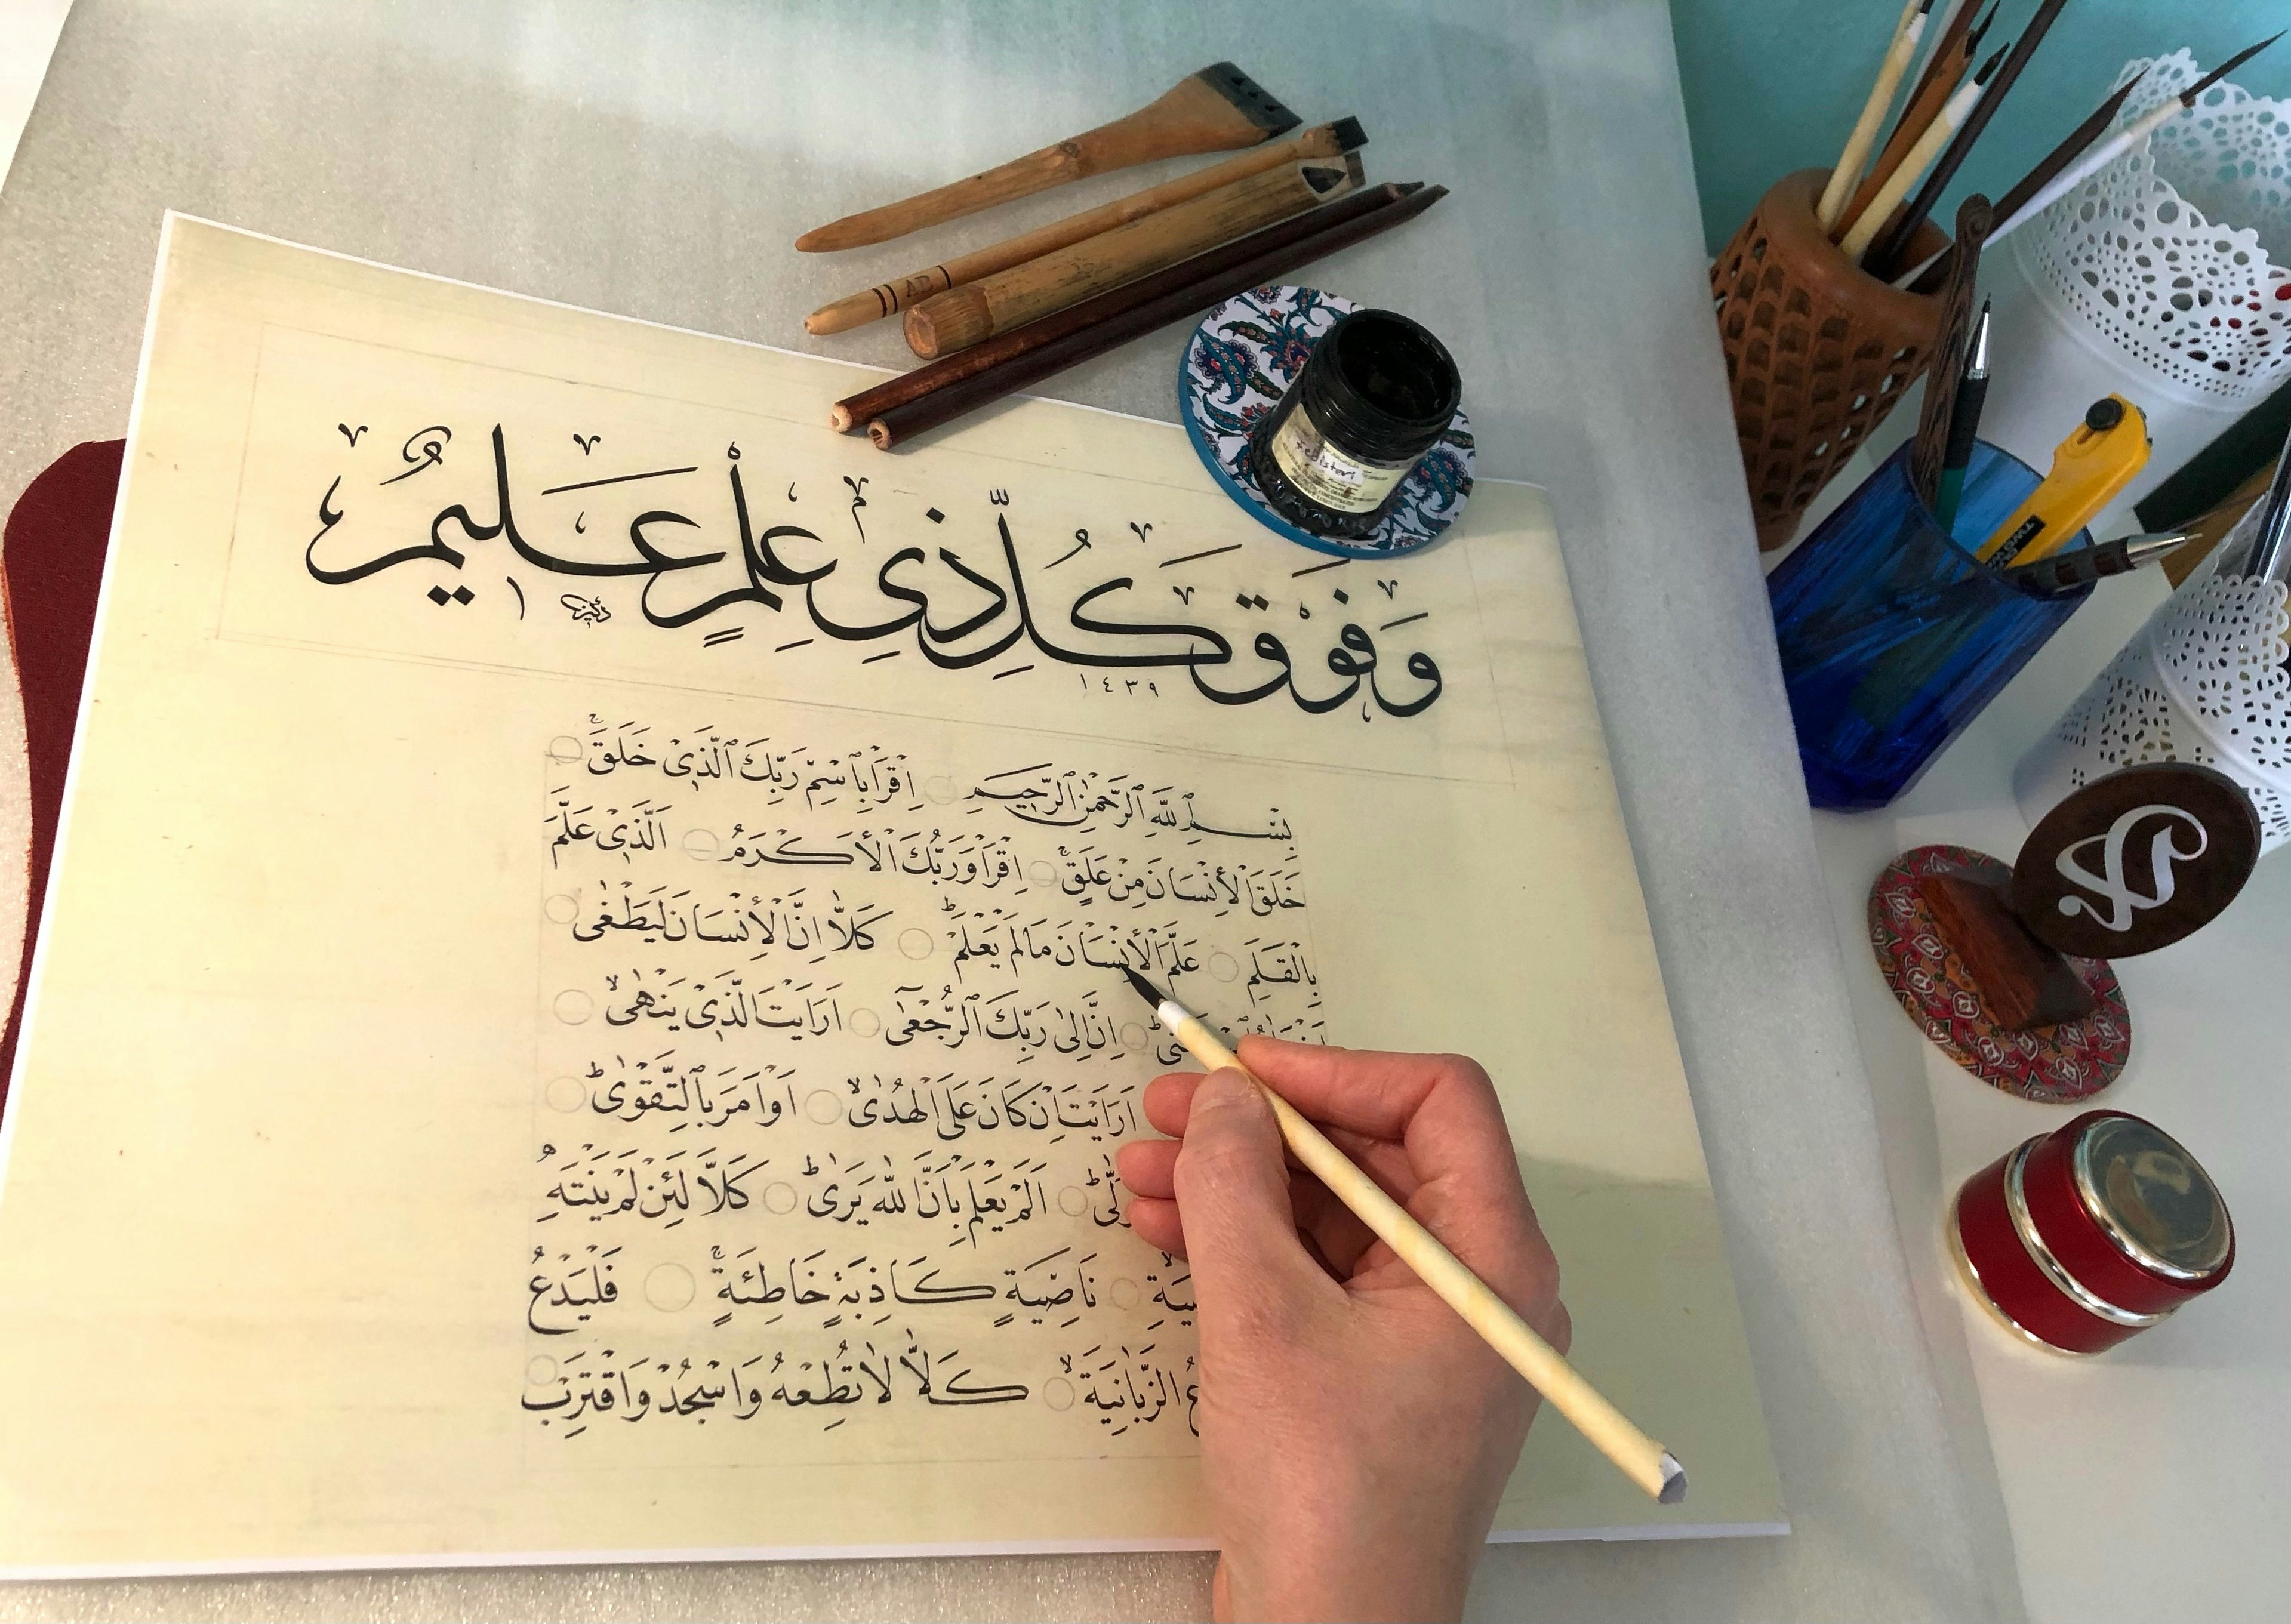 وَفَوْقَ كُلِّ ذِى عِلْمٍ عَلِيمٌ
١٤٣٩
بِسْمِ اللّٰهِ الرَّحْمٰنِ الرَّحِيمِ اِقْرَأْ بِاسْمِ رَبِّكَ الَّذِى خَلَقَۚ
خَلَقَ الْاِنْسَانَ مِنْ عَلَقٍۚ اِقْرَأْ وَرَبُّكَ الْاَكْرَمُ اَلَّذِى عَلَّمَ
بِالْقَلَمِ عَلَّمَ الْاِنْسَانَ مَا لَمْ يَعْلَمْؕ كَلَّا اِنَّ الْاِنْسَانَ لَيَطْغٰى
اِنَّ اِلٰى رَبِّكَ الرُّجْعٰى اَرَاَيْتَ الَّذِى يَنْهٰىۙ
اَرَاَيْتَ اِنْ كَانَ عَلَى الْهُدٰىۙ اَوْ اَمَرَ بِالتَّقْوٰىؕ
اَلَمْ يَعْلَمْ بِاَنَّ اللّٰهَ يَرٰىؕ كَلَّا لَئِنْ لَمْ يَنْتَهِ
نَاصِيَةٍ كَاذِبَةٍ خَاطِئَةٍۚ فَلْيَدْعُ
الزَّبَانِيَةَۙ كَلَّا لَا تُطِعْهُ وَاسْجُدْ وَاقْتَرِبْ